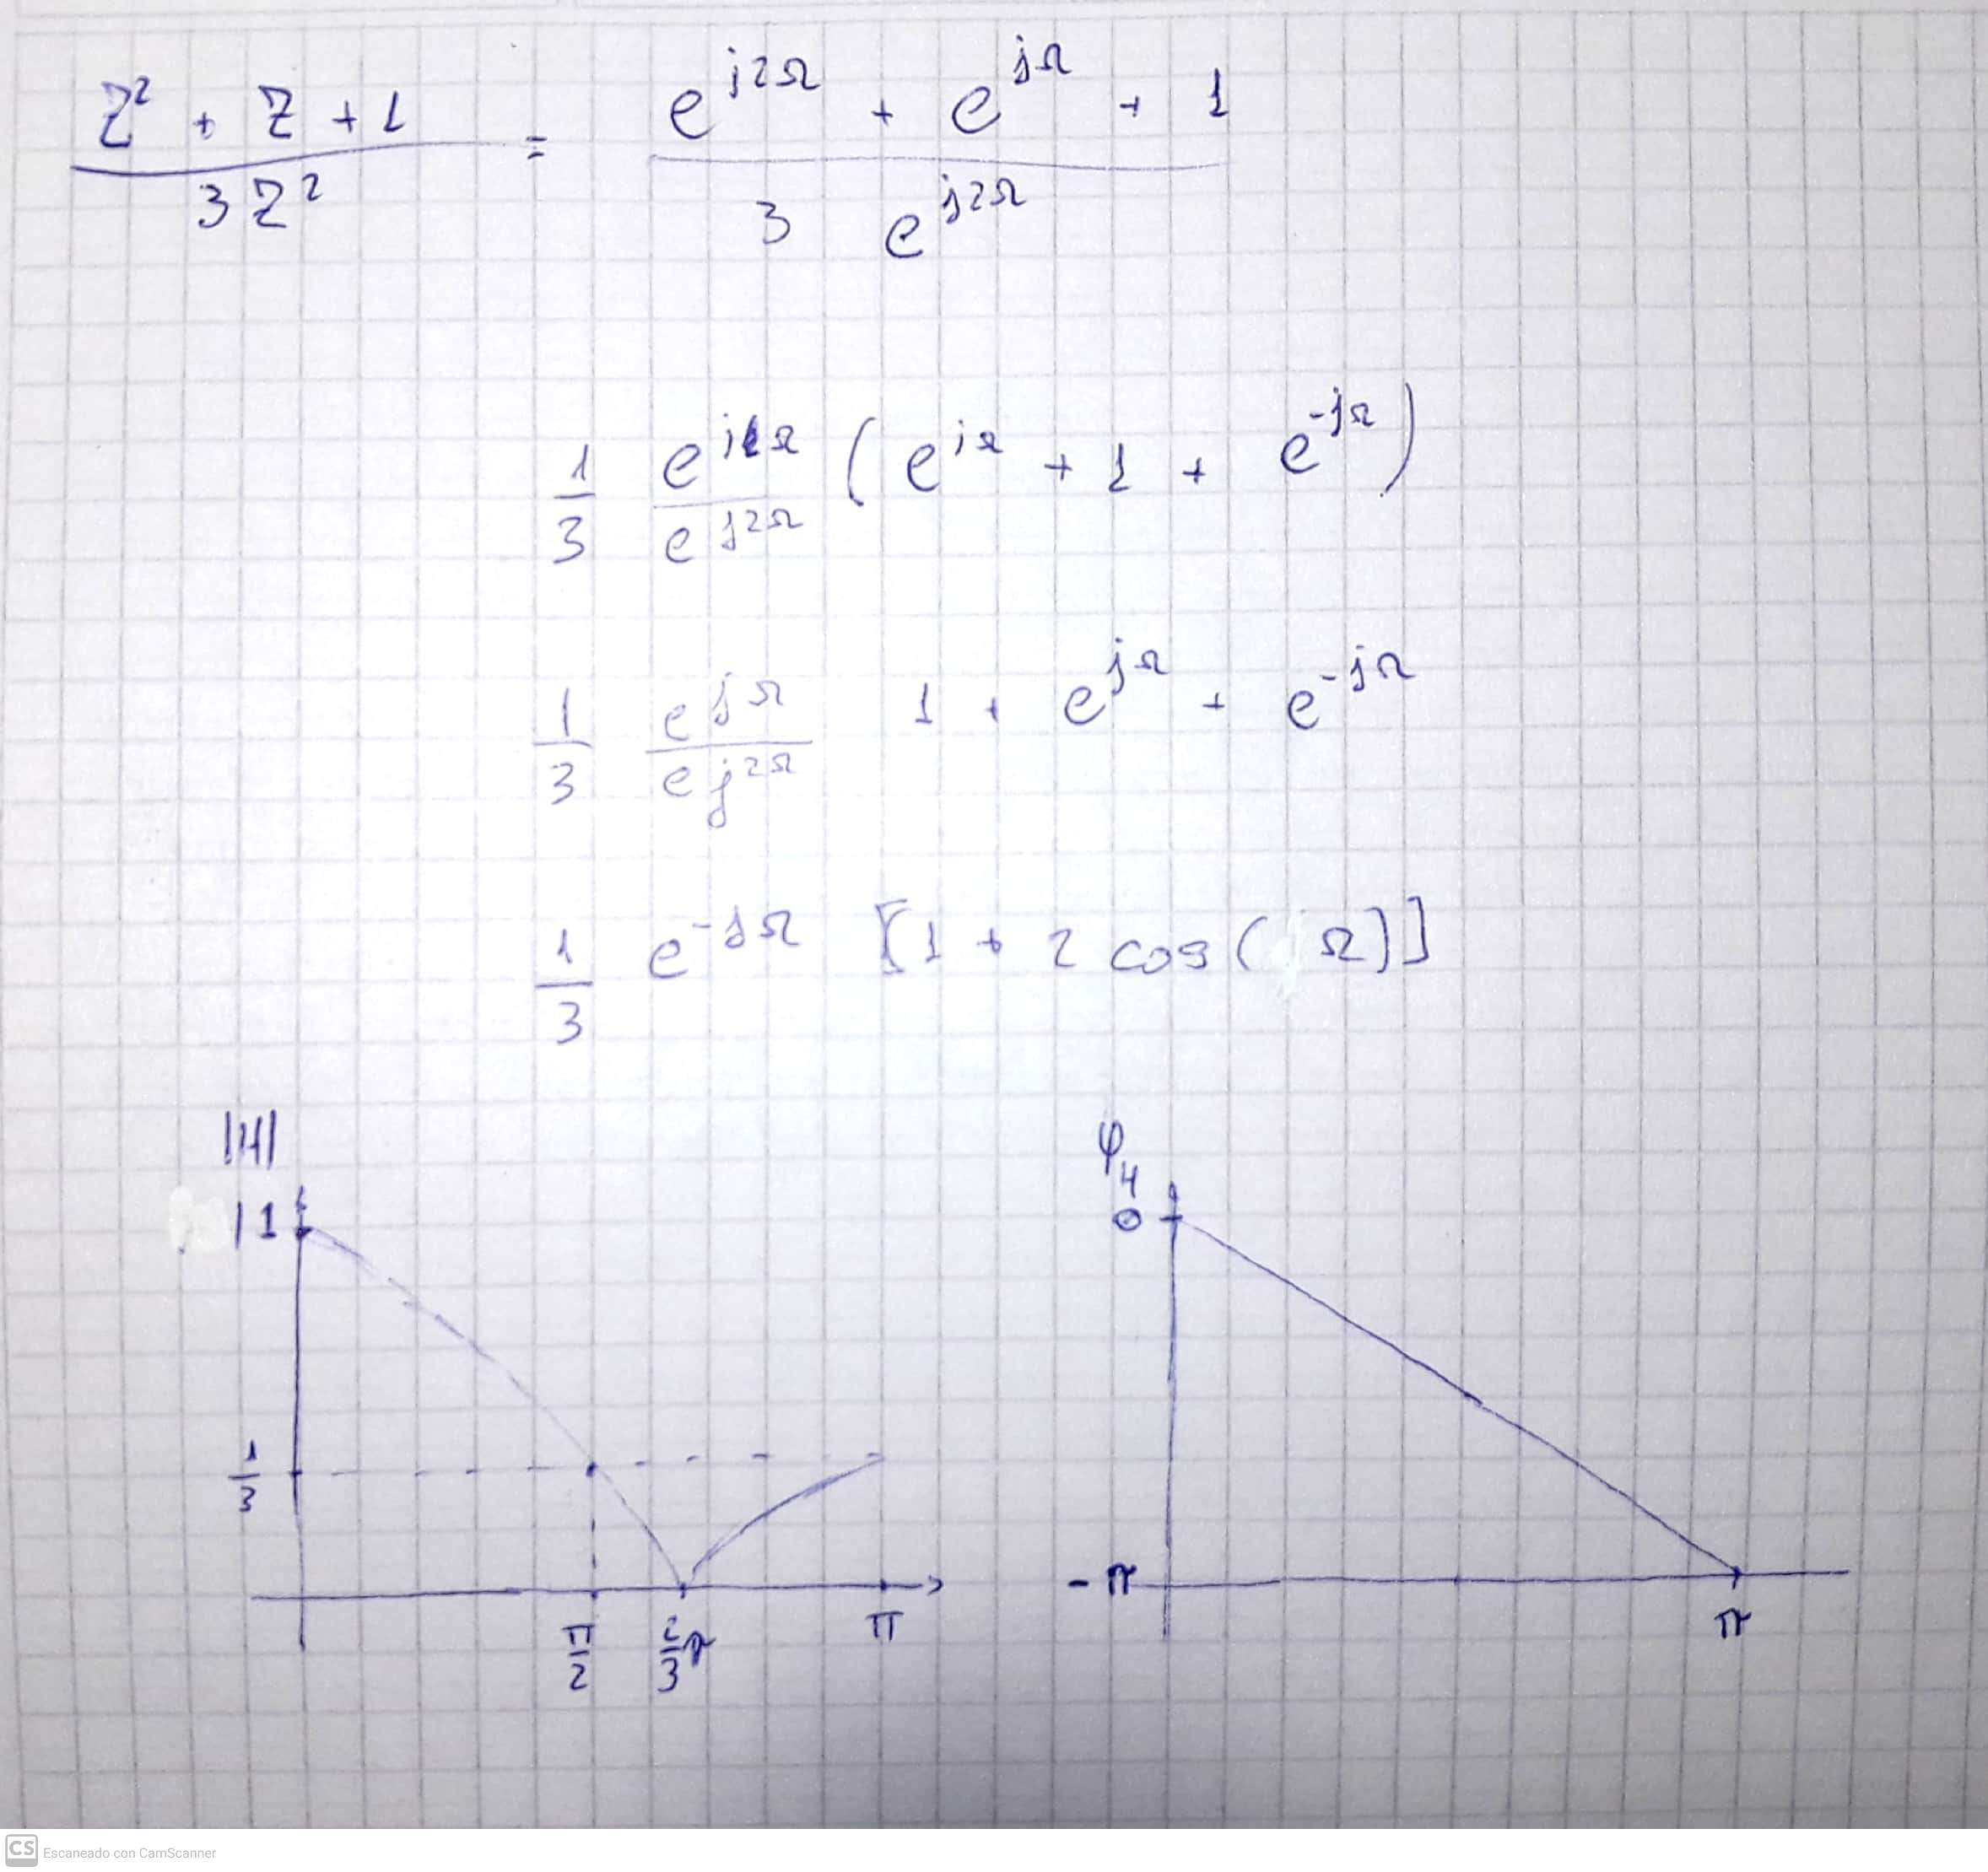 Z² + Z + 1 / 3 Z² = e^{j2Ω} + e^{jΩ} + 1 / 3 e^{j2Ω}
1/3 e^{j1Ω} / e^{j2Ω} ( e^{jΩ} + 1 + e^{-jΩ} )
1/3 e^{jΩ} / e^{j2Ω} 1 + e^{jΩ} + e^{-jΩ}
1/3 e^{-jΩ} [1 + 2 cos( Ω)]
|H|
1
1/3
π/2
2/3 π
π
φ_H
0
-π
π
CS Escaneado con CamScanner